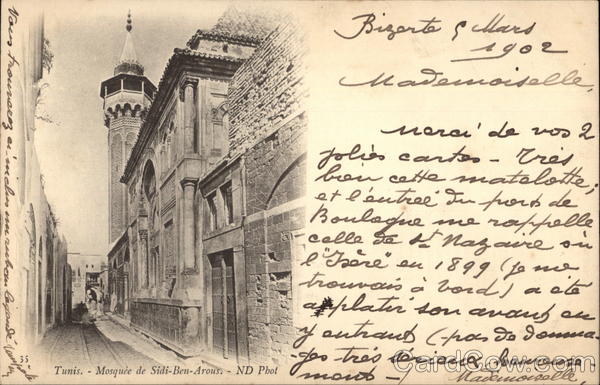 Bizerte 5 Mars
1902
Mademoiselle,
Merci de vos 2
jolies cartes - Très
bien cette matelotte;
et l'entrée du port de
Boulogne me rappelle
celle de St Nazaire où
l'"Isère" en 1899 (je me
trouvais à bord) a été
aplatir son avant en
y entrant (pas de domma-
ges très sérieux heureuse-
ment -) Mademoiselle,
Vous trouverez ci-inclus un ruban légendé
35
Tunis. - Mosquée de Sidi-Ben-Arous. - ND Phot
CardCow.com